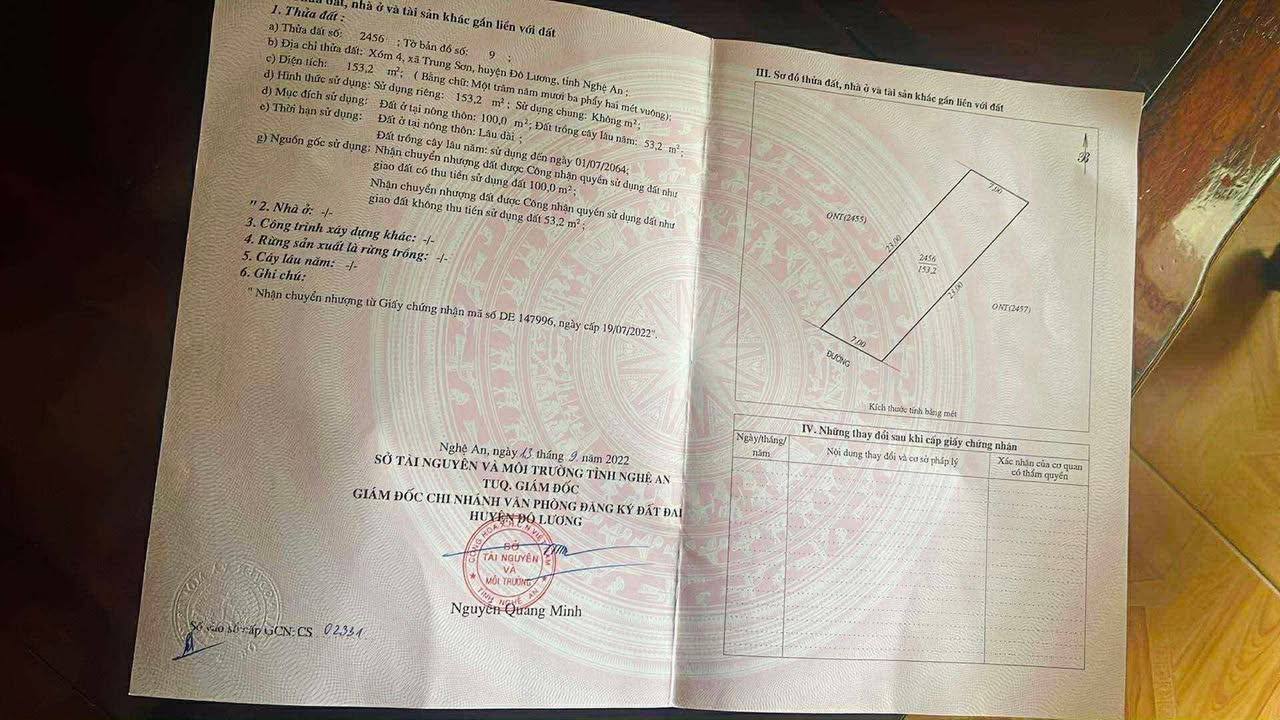 nhà ở và tài sản khác gắn liền với đất
1. Thửa đất :
a) Thửa đất số: 2456 ; Tờ bản đồ số: 9 ;
b) Địa chỉ thửa đất: Xóm 4, xã Trung Sơn, huyện Đô Lương, tỉnh Nghệ An ;
c) Diện tích: 153,2 m²; ( Bằng chữ: Một trăm năm mươi ba phẩy hai mét vuông);
d) Hình thức sử dụng: Sử dụng riêng: 153,2 m² ; Sử dụng chung: Không m²;
đ) Mục đích sử dụng: Đất ở tại nông thôn: 100,0 m²; Đất trồng cây lâu năm: 53,2 m²;
e) Thời hạn sử dụng: Đất ở tại nông thôn: Lâu dài ;
Đất trồng cây lâu năm: sử dụng đến ngày 01/07/2064;
g) Nguồn gốc sử dụng: Nhận chuyển nhượng đất được Công nhận quyền sử dụng đất như
giao đất có thu tiền sử dụng đất 100,0 m² ;
Nhận chuyển nhượng đất được Công nhận quyền sử dụng đất như
giao đất không thu tiền sử dụng đất 53,2 m² ;
" 2. Nhà ở: -/-
3. Công trình xây dựng khác: -/-
4. Rừng sản xuất là rừng trồng: -/-
5. Cây lâu năm: -/-
6. Ghi chú:
" Nhận chuyển nhượng từ Giấy chứng nhận mã số DE 147996, ngày cấp 19/07/2022".
Nghệ An, ngày 13 tháng 9 năm 2022
SỞ TÀI NGUYÊN VÀ MÔI TRƯỜNG TỈNH NGHỆ AN
TUQ. GIÁM ĐỐC
GIÁM ĐỐC CHI NHÁNH VĂN PHÒNG ĐĂNG KÝ ĐẤT ĐAI
HUYỆN ĐÔ LƯƠNG
SỞ
TÀI NGUYÊN
VÀ
MÔI TRƯỜNG
TỈNH NGHỆ AN
Nguyễn Quang Minh
Số vào sổ cấp GCN: CS 02331
III. Sơ đồ thửa đất, nhà ở và tài sản khác gắn liền với đất
B
7,00
ONT(2455)
23,00
2456
153,2
23,00
ONT(2457)
7,00
ĐƯỜNG
Kích thước tính bằng mét
IV. Những thay đổi sau khi cấp giấy chứng nhận
Ngày/tháng/
năm
Nội dung thay đổi và cơ sở pháp lý
Xác nhận của cơ quan
có thẩm quyền